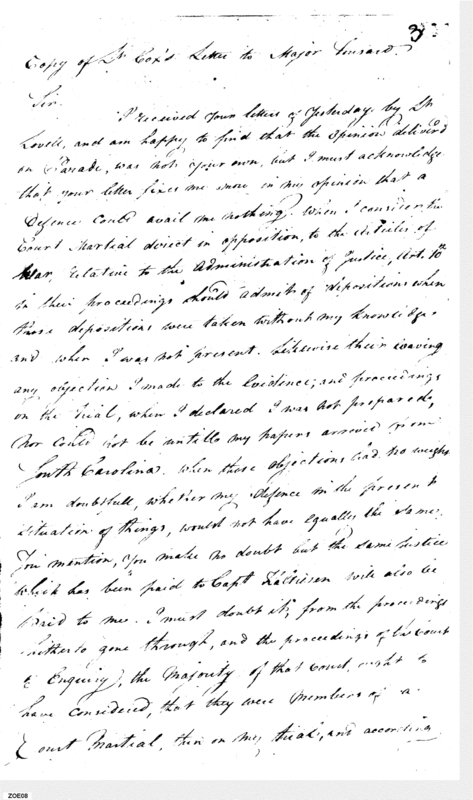 3
Copy of Lt Cox's Letter to Major
Sir.
I received your letter of Yesterday by Lt
Lovell, and am happy to find that the opinion deliverd
on Parade, was not your own, but I must acknowledge
that your letter fixes me more in my opinion that a
Defence could avail me nothing. When I consider the
Court Martial direct in opposition, to the Articles of
War, relative to the Administration of Justice, Art. 10th
in their proceedings should admit of depositions when
those depositions were taken without my knowledge
and when I was not present. Likewise their waving
any objection I made to the Evidence, and proceedings
on the trial, when I declared I was not prepared,
nor could not be untill my papers arrived from
South Carolina. When those objections had no weight
I am doubtfull, whether my defence in the present
situation of things, would not have equally the same.
You mention, you make no doubt but the same justice
which has been paid to Capt will also be
paid to me. I must doubt it, from the proceedings
hitherto gone through, and the proceedings of the Court
of Enquiry, the Majority of that Court ought to
have considered, that they were Members of a
Court Martial, then on my trial, and according
ZOE08